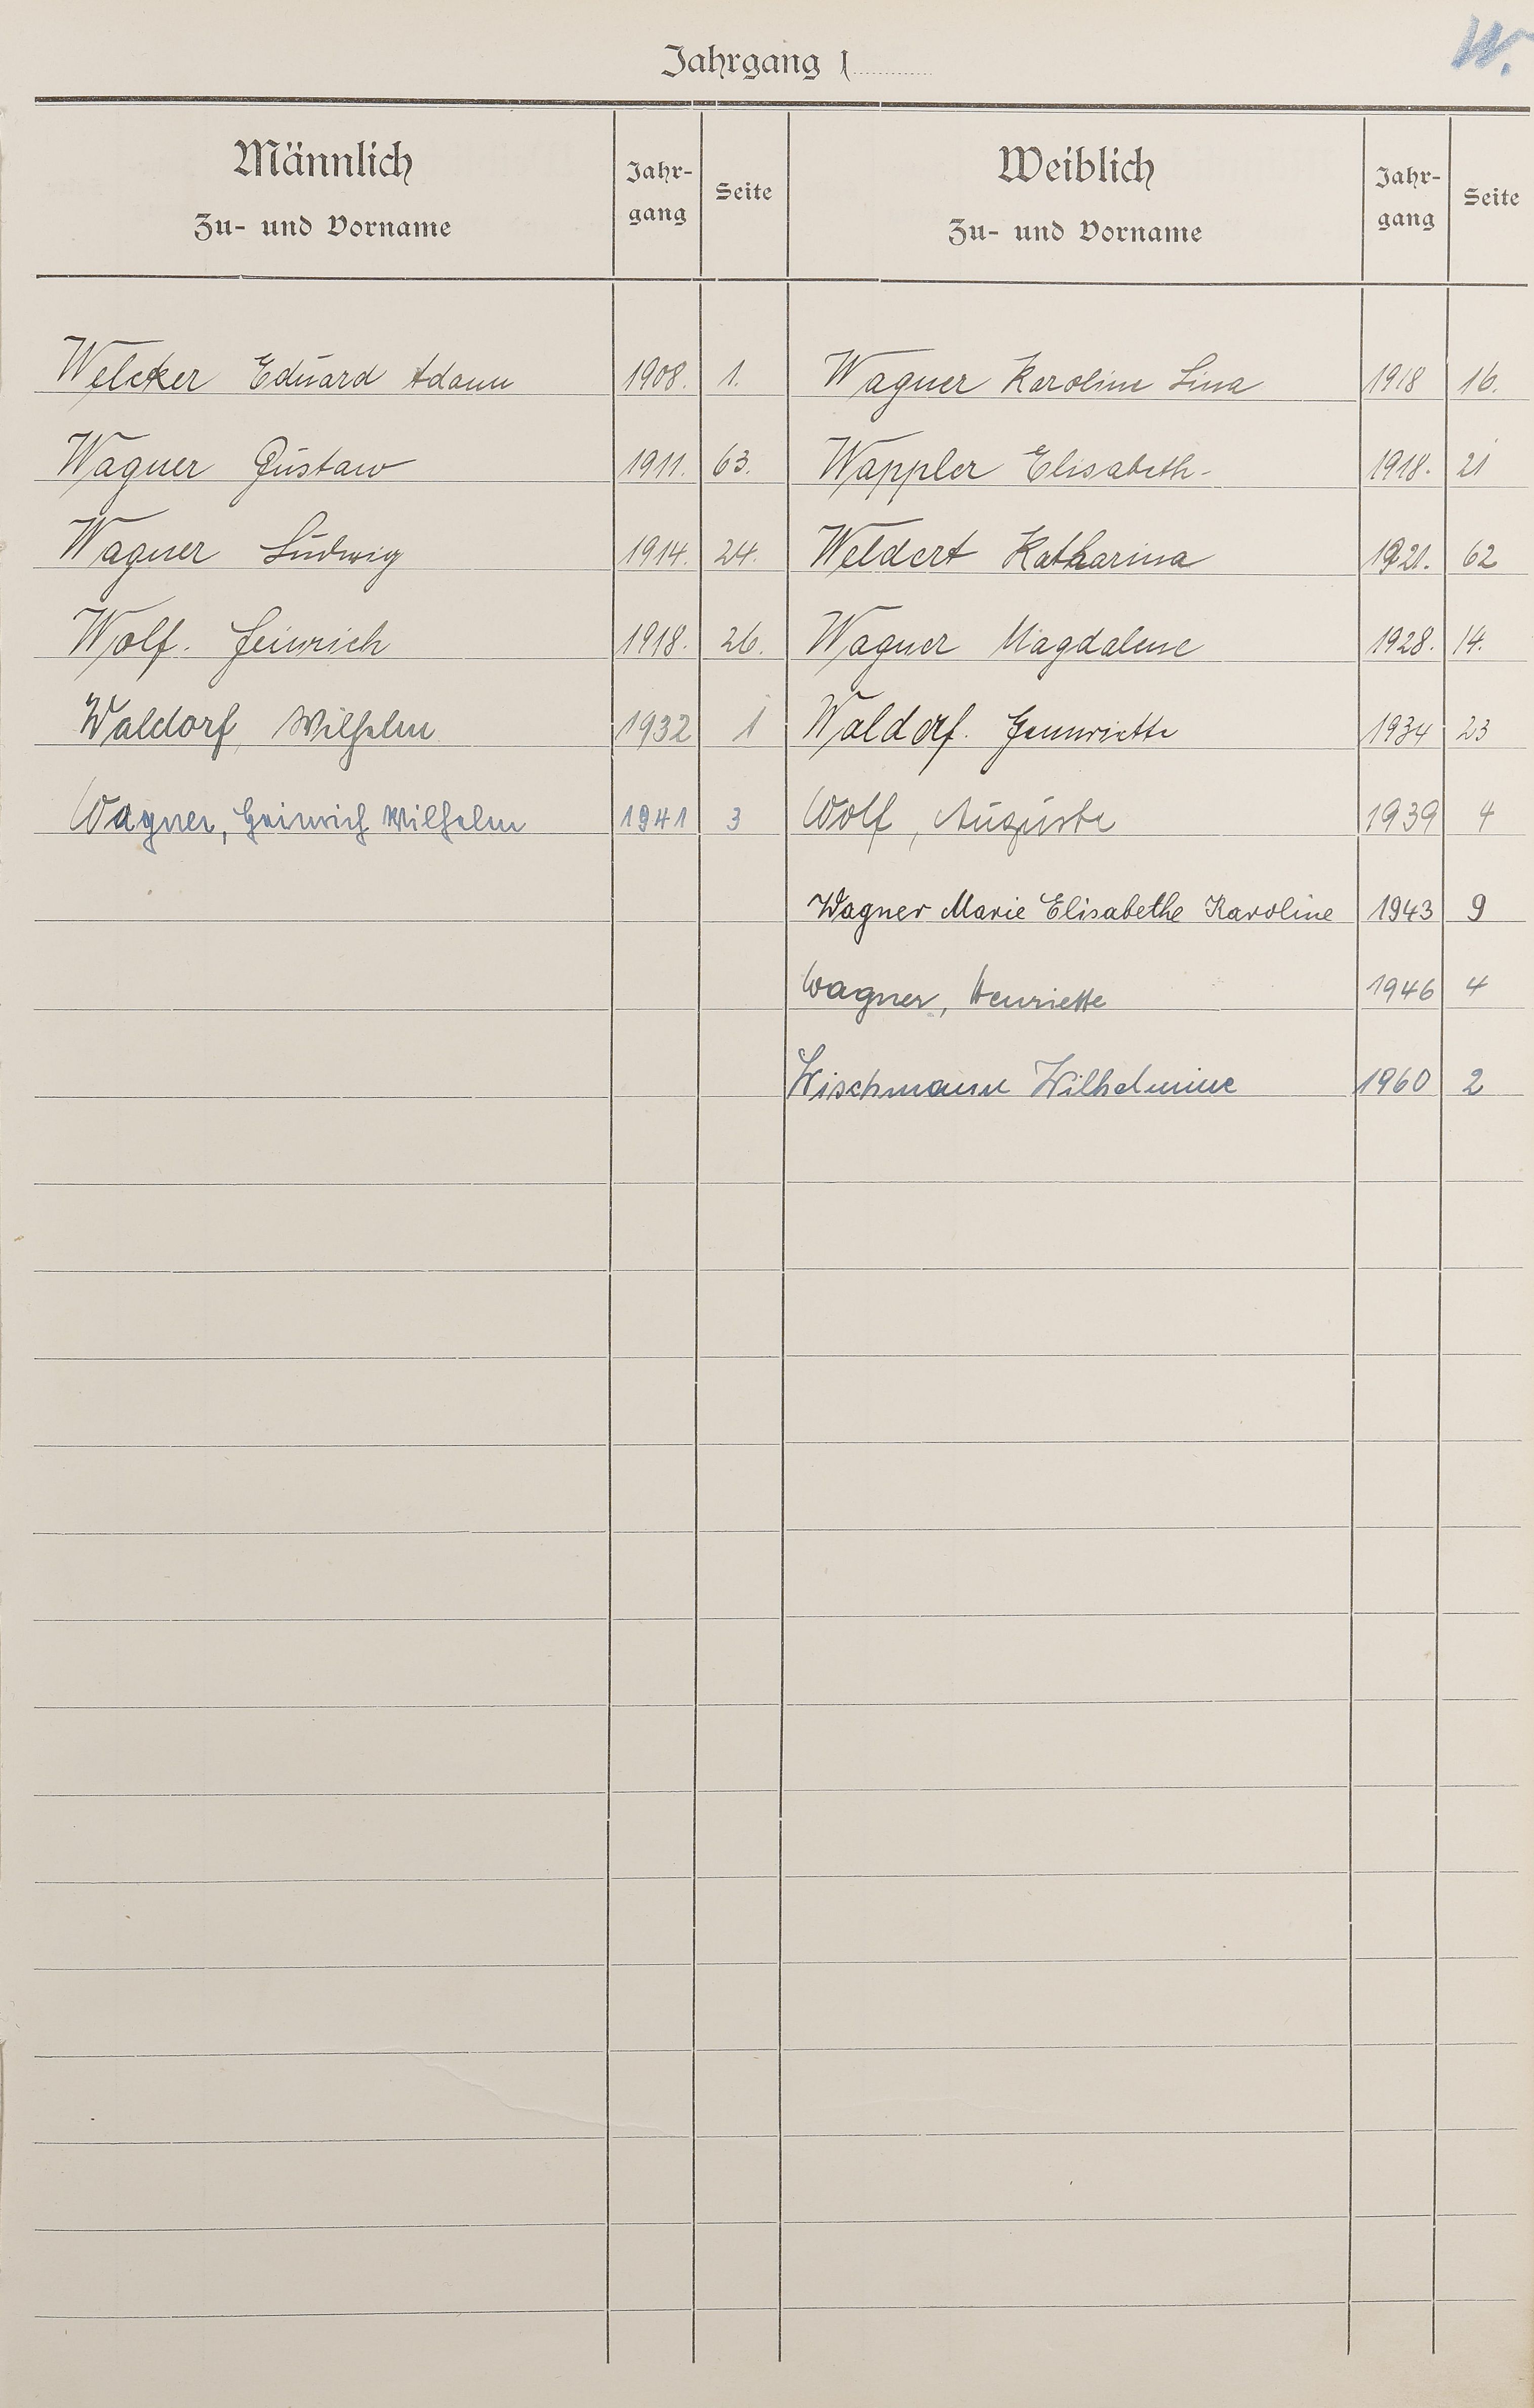 W.
Jahrgang 1
Männlich
Zu- und Vorname
Jahr-
gang
Seite
Weiblich
Zu- und Vorname
Jahr-
gang
Seite
Welcker Eduard Adam 1908. 1. Wagner Karoline Lina 1918 16.
Wagner Gustaw 1911. 63. Wappler Elisabeth- 1918. 21
Wagner Ludwig 1914. 24. Weldert Katharina 1921. 62
Wolf. Heinrich 1918. 26. Wagner Magdalene 1928. 14.
Waldorf, Wilhelm 1932 1 Waldorf. Hennriette 1934 23
Wagner, Heinrich Wilhelm 1941 3 Wolf, Auguste 1939 4
Wagner Marie Elisabethe Karoline 1943 9
Wagner, Henriette 1946 4
Wischmann Wilhelmine 1960 2